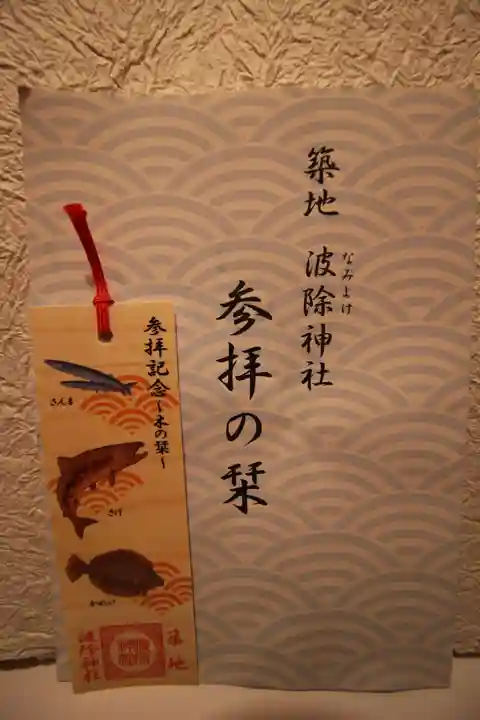 築地 波除神社
なみよけ
参拝の栞
参拝記念～木の栞～
さんま
さけ
築地
波除神社